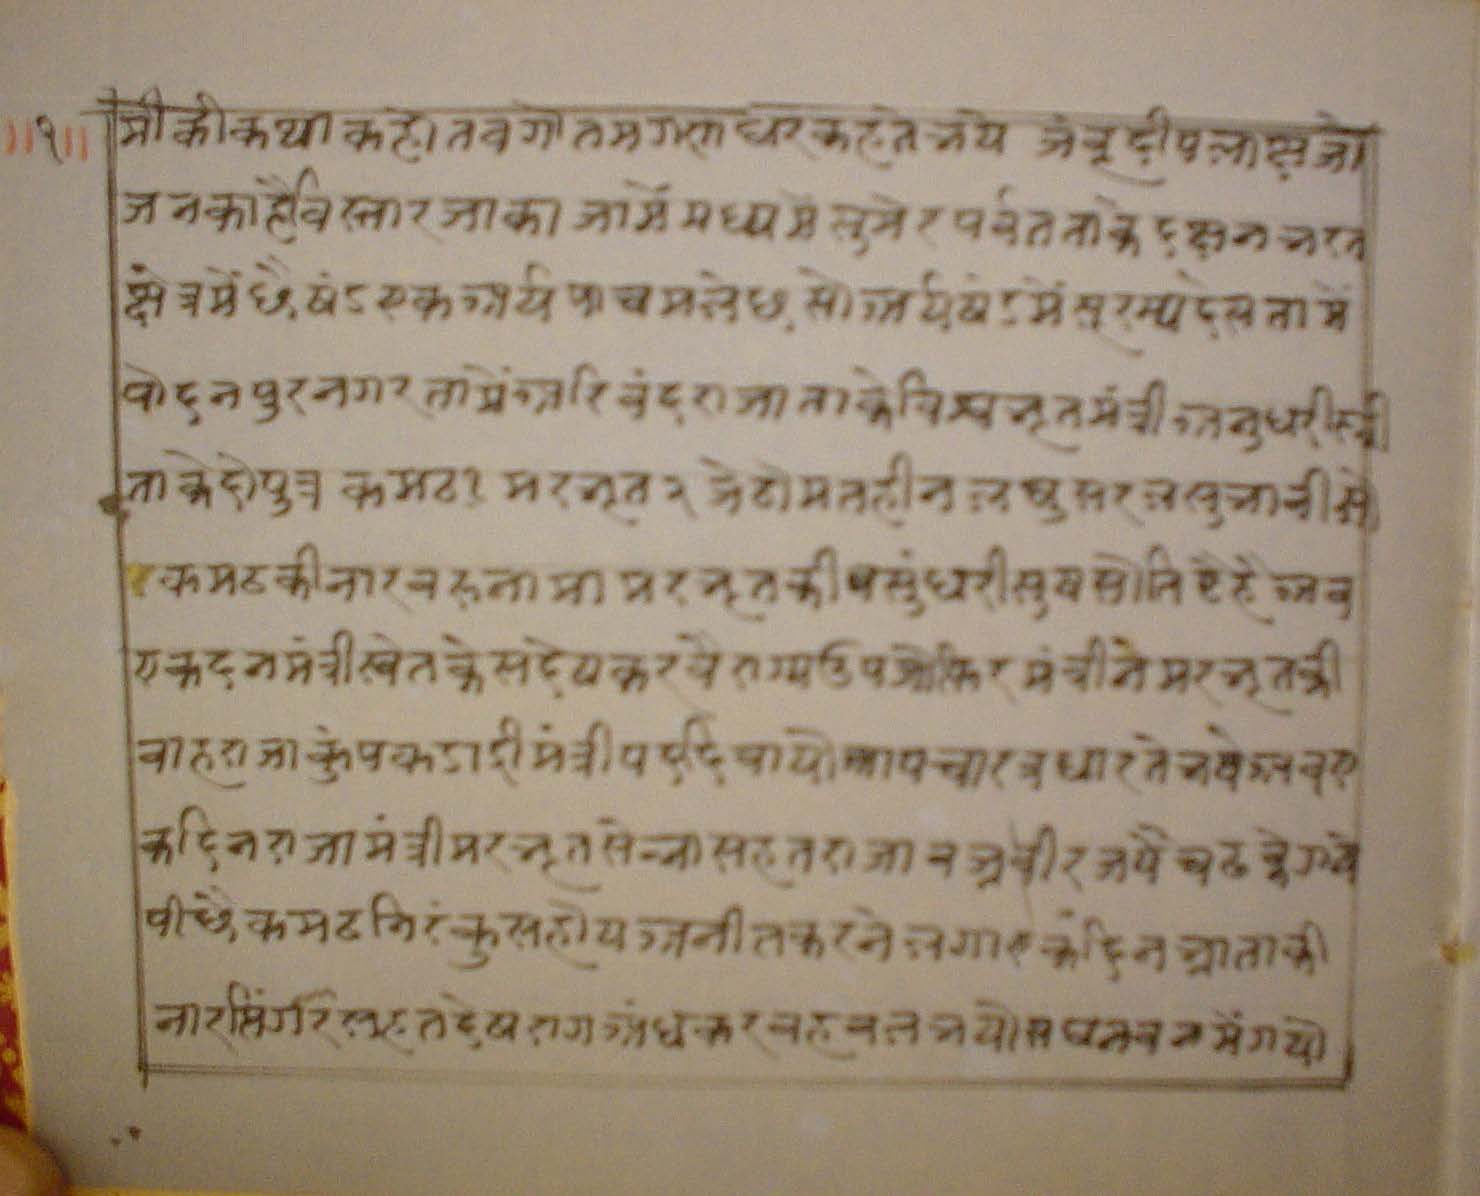 ॥१॥ श्री की कथा कहो। तब गोतम गणधर कहते भये जंबूदीप लाक्ष जो
जन का है विस्तार जाका जामें मध्य में सुमेर पर्वत ताके दक्षन भरत
क्षेत्र में छै षंड एक आर्य पाच मलेछ सो आर्य षंड में सुरम्य देस ता में
पोदनपुर नगर तामें अरिवंद राजा ताके विश्वभूत मंत्री अनुधरी स्त्री
ता के दो पुत्र कमठ १ मरभूत २ जेठो मतहीन लघु सरल सुभावी सो
१ कमठ की नार वरुना मा मरभूत की वसुंधरी सुष सो तिष्टै है अब
एक दन मंत्री स्वेत केस देष कर वैराग्य उपजो फिर मंत्री ने मरभूत की
बाह राजा कुं पकडा दी मंत्री पद दिवायो आप चारत्र धारते भये अब ए
क दिन राजा मंत्री मरभूत सेन्या सहत राजा वज्रवीर जपै चढ के गये
पीछै कमठ निरंकुस होय अनीत करने लगा एक दिन भ्राता की
नार सिंगार सहत देष राग अंध कर वहवल भयो सघन वन में गयो